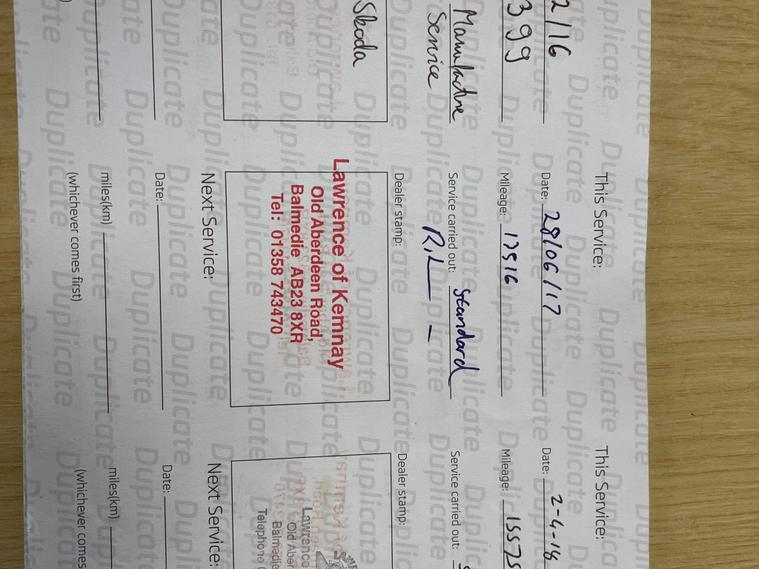 2/16
399
Manufacture
Service
Skoda
This Service:
Date: 28/06/17
Mileage: 17516
Service carried out: Standard
Dealer stamp:
Lawrence of Kemnay
Old Aberdeen Road,
Balmedie AB23 8XR
Tel: 01358 743470
Next Service:
Date:
miles(km)
(whichever comes first)
This Service:
Date: 2-4-18
Mileage: 15575
Service carried out:
Dealer stamp:
Lawrence
Old Aber
Balmedie
Telephone
Next Service:
Date:
miles(km)
(whichever comes
Duplicate